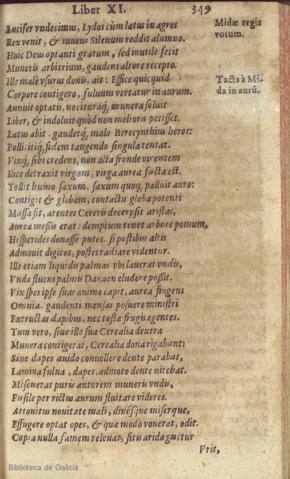 Liber XI. 349
Lucifer vndecimus, Lydos cùm lætus in agros
Rex venit, & iuueni Silenum reddit alumno.
Huic Deus optanti gratum, sed inutile fecit
Muneris arbitrium, gaudens altore recepto.
Ille malè vsurus donis, ait: Effice quicquid
Corpore contigero, fuluum vertatur in aurum.
Annuit optatis, nocituraq́; munera soluit
Liber, & indoluit quòd non meliora petisset.
Lætus abit. gaudetq́; malo Berecynthius heros:
Pollicitiq́; fidem tangendo singula tentat.
Vixq́; sibi credens, non alta fronde virentem
Ilice detraxit virgam, virga aurea facta est.
Tollit humo saxum, saxum quoq; palluit auro:
Contigit & glebam, contactu gleba potenti
Massa fit, arentes Cereris decerpsit aristas,
Aurea messis erat: demptum tenet arbore pomum,
Hesperidas donasse putes. si postibus altis
Admouit digitos, postes radiare videntur.
Ille etiam liquidis palmas vbi lauerat vndis,
Vnda fluens palmis Danaen eludere possit.
Vix spes ipse suas animo capit, aurea fingens
Omnia. gaudenti mensas posuere ministri
Extructas dapibus, nec tostæ frugis egentes.
Tum vero, siue ille sua Cerealia dextra
Munera contigerat, Cerealia dona rigebant:
Siue dapes auido conuellere dente parabat,
Lamina fulua, dapes, admoto dente nitebat.
Miscuerat puris autorem muneris vndis,
Fusile per rictus aurum fluitare videres.
Attonitus nouitate mali, diuésque miserque,
Effugere optat opes, & quæ modò vouerat, odit.
Copia nulla famem releuat, sitis arida guttur
Vrit,
Midæ regis
votum.
Tacta à Mi-
da in aurũ.
Biblioteca de Galicia